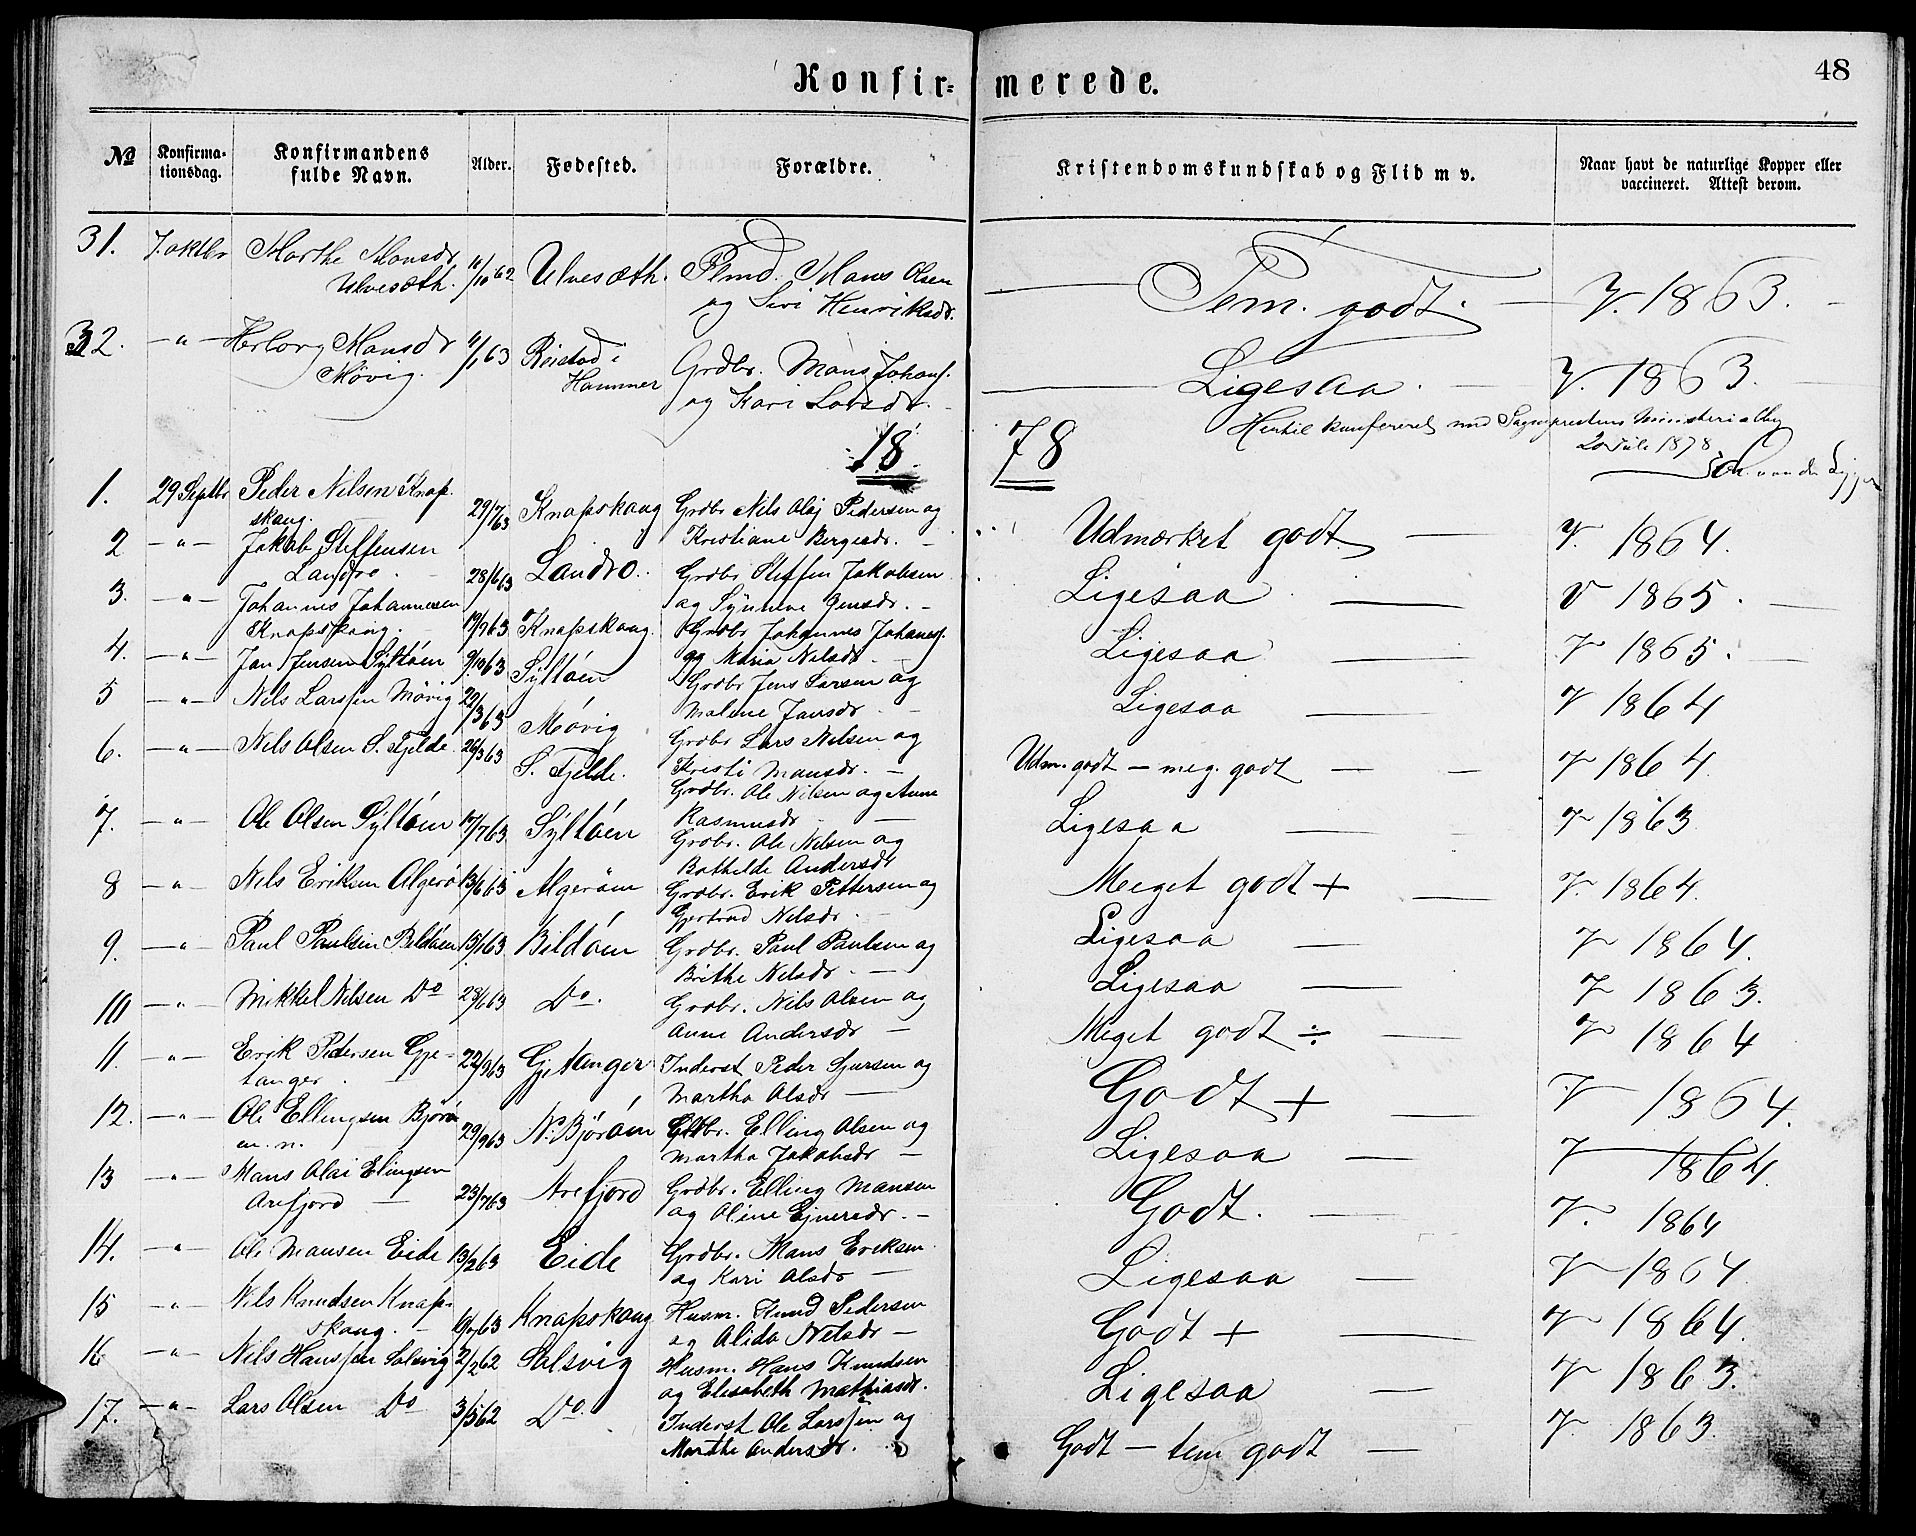 Konfir= merede. 48
№ Konfirma= tionsdag. Konfirmandens fulde Navn. Alder. Fødested. Forældre. Kristendomskundskab og Flid m v. Naar havt de naturlige Kopper eller vaccineret. Attest derom.
31. 7. oktbr Marthe Monsdr 11/10 62 Ulvesæth. Plmd. Mans Olsen Tem. godt. V. 1863.
Ulvesæth. og Siri Henriksdr.
32. —"— Herborg Mansdr 11/1 63 Reistad i Grdbr. Mans Johans. Ligesaa. V. 1863.
Møvig. Hammer og Kari Larsdr.
Hertil konfereret med Sognepræstens Ministerialbog
20 Juli 1878
18 78
1. 29 Septbr Peder Nilsen Knap- 29/7 63 Knapskaug Grdbr Nils Olaj Pedersen og Udmærket godt V. 1864.
skaug. Kristiane Bergesdr.
2 —"— Jakob Steffensen 28/6 63 Landro. Grdbr Steffen Jakobsen Ligesaa V 1865.
Landro. og Synneve Jensdr.
3. —"— Johannes Johannesen 19/9 63 Knapskaug. Grdbr Johannes Johanns. Ligesaa V 1865.
Knapskaug. og Maria Nilsdr
4. —"— Jan Jensen Syltøen 9/10 63 Syltøen Grdbr Jens Larsen og Ligesaa V 1864
Malene Jansdr
5 —"— Nils Larssen Møvig 22/3 63 Møvig Grdbr Lars Nilsen og Udm. godt — meg. godt V 1864.
Kristi Mansdr.
6. —"— Nils Olsen S. Fjelde. 26/3 63 S. Fjelde. Grdbr. Ole Nilsen og Anne Ligesaa V 1863
Rasmusdr
7. —"— Ole Olsen Syltøen 17/7 63 Syltøen Grdbr. Ole Nilsen og Meget godt + V. 1864.
Bothilde Andersdr
8 —"— Nils Eriksen Algerø 13/6 63 Algerøen Grdbr. Erik Pettersen og Ligesaa V 1864.
Gjertrud Nilsdr.
9. —"— Paul Paulsen Bildøen 15/1 63 Bildøen Grdbr. Paul Paulsen og Ligesaa V 1863.
Brithe Nilsdr.
10 —"— Mikkel Nilsen Do 23/6 63 Do. Grdbr. Nils Olsen og Meget godt ÷ V 1864
Anne Andersdr
11. —"— Erik Pedersen Gje- 22/9 63 Gjetanger Inderst Peder Sjursen og Godt + V 1864.
tanger. Martha Olsdr
12. —"— Ole Ellingsen Bjørø- 29/9 63 N. Bjørøen Grdbr. Elling Olsen og Ligesaa V 1864.
en. n. Martha Jakobsdr
13 —"— Mans Olai Elingsen 23/7 63 Arefjord Grdbr. Elling Mansen Godt. V. 1864
Arefjord og Oline Ejnersdr.
14. —"— Ole Mansen Eide 13/2 63 Eide Grdbr. Mans Eriksen Ligesaa V 1864
og Kari Olsdr
15 —"— Nils Knudsen Knap- 6/7 63 Knapskaug Husm. Knud Pedersen Godt + V 1864.
skaug. og Alida Nilsdr
16 —"— Nils Hanssen Solsvig 2/2 62 Solsvig Husm. Hans Knudsen Ligesaa V 1863.
og Elisabeth Mathiasdr.
17. —"— Lars Olsen Do 3/5 62 Do. Inderst Ole Larssen og Godt — tem godt V. 1863.
Marthe Andersdr.